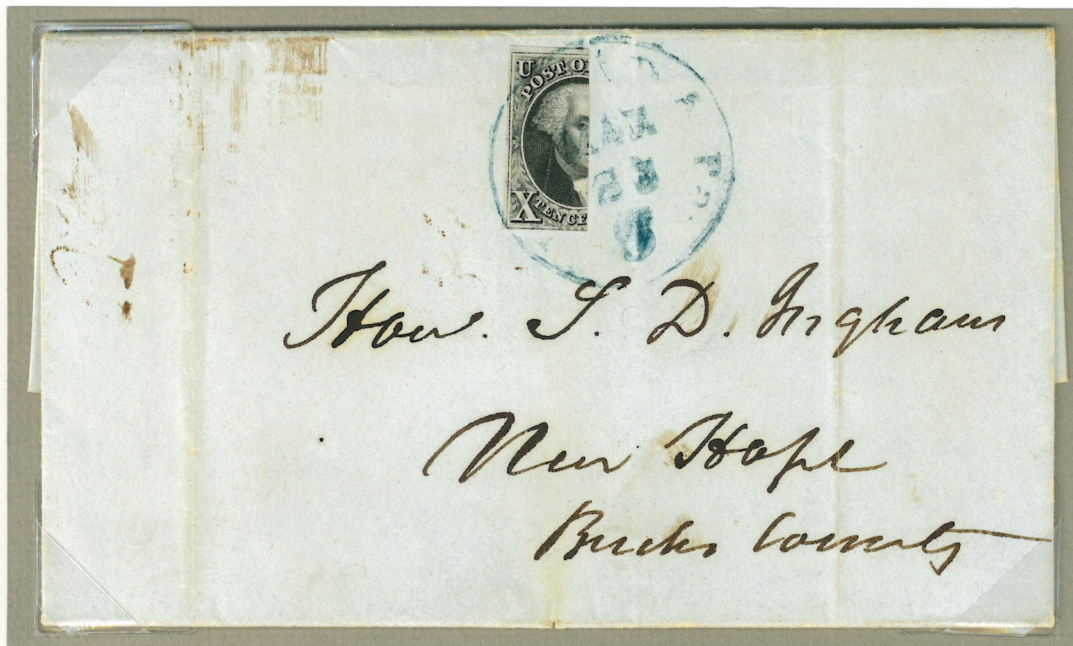 U
POST O
X
TEN CE
MAY
28
Pa.
Hon. S. D. Ingham
New Hope
Bucks County